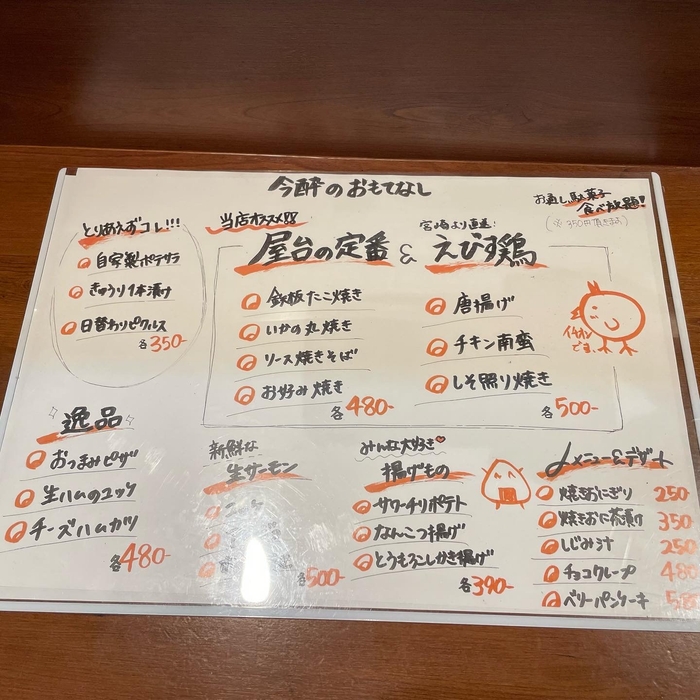 今酔のおもてなし
お通し駄菓子
食べ放題!
(※350円頂きます)
とりあえずコレ!!!
自家製ポテサラ
きゅうり1本漬け
日替わりピクルス
各350-
当店オススメ
屋台の定番
&
宮崎より直送!
えびす鶏
鉄板たこ焼き
いかの丸焼き
ソース焼きそば
お好み焼き
各480-
唐揚げ
チキン南蛮
しそ照り焼き
各500-
イチオシ
逸品
おつまみピザ
生ハムのユッケ
チーズハムカツ
各480-
新鮮な
生サーモン
各500-
みんな大好き
揚げもの
サワーチリポテト
なんこつ揚げ
とうもろこしかき揚げ
各390-
〆メニュー&デザート
焼きおにぎり 250
焼きおに茶漬け 350
しじみ汁 250
チョコクレープ 480
ベリーパンケーキ